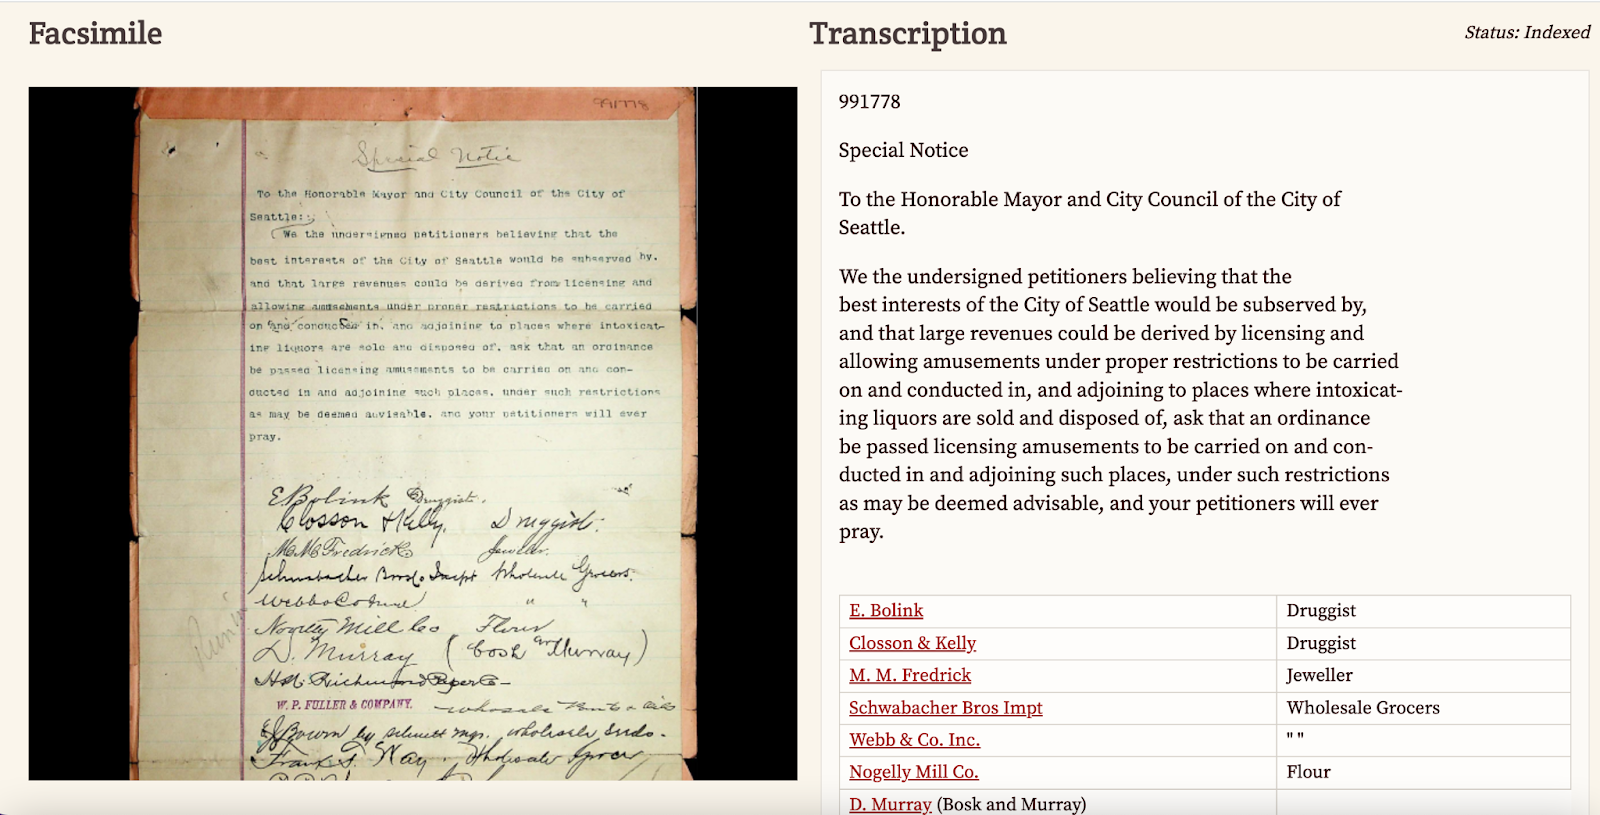 Facsimile
991778
Special Notice
To the Honorable Mayor and City Council of the City of
Seattle:
We the undersigned petitioners believing that the
best interests of the City of Seattle would be subserved by,
and that large revenues could be derived from licensing and
allowing amusements under proper restrictions to be carried
on and conducted in, and adjoining to places where intoxicat-
ing liquors are sold and disposed of, ask that an ordinance
be passed licensing amusements to be carried on and con-
ducted in and adjoining such places, under such restrictions
as may be deemed advisable, and your petitioners will ever
pray.
E. Bolink Druggist.
Closson & Kelly. Druggist.
M. M. Fredrick Jeweller.
Schwabacher Bros & Wholesale Grocers.
" "
Mill Co Flour
D. Murray ( and Murray)
Richmond Paper Co
W. P. FULLER & COMPANY. wholesale Paints & Oils
mgr. wholesale
Frank wholesale Grocer
Transcription
Status: Indexed
991778
Special Notice
To the Honorable Mayor and City Council of the City of
Seattle.
We the undersigned petitioners believing that the
best interests of the City of Seattle would be subserved by,
and that large revenues could be derived by licensing and
allowing amusements under proper restrictions to be carried
on and conducted in, and adjoining to places where intoxicat-
ing liquors are sold and disposed of, ask that an ordinance
be passed licensing amusements to be carried on and con-
ducted in and adjoining such places, under such restrictions
as may be deemed advisable, and your petitioners will ever
pray.
E. Bolink Druggist
Closson & Kelly Druggist
M. M. Fredrick Jeweller
Schwabacher Bros Impt Wholesale Grocers
Webb & Co. Inc. " "
Nogelly Mill Co. Flour
D. Murray (Bosk and Murray)